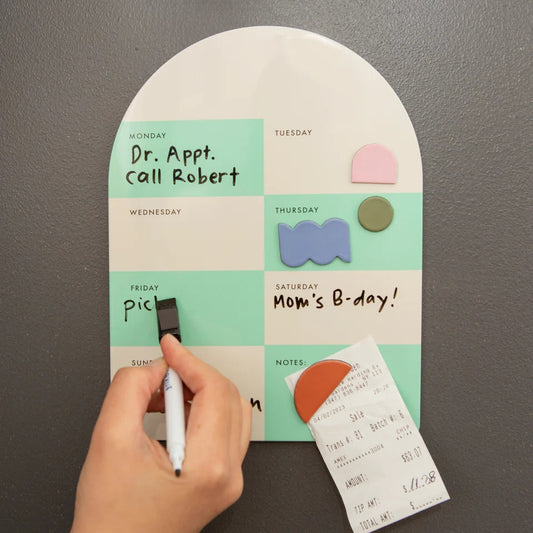 MONDAY
Dr. Appt.
call Robert
TUESDAY
WEDNESDAY
THURSDAY
FRIDAY
SATURDAY
Mom's B-day!
NOTES:
04/02/2023
Sale
Trans #: 81 Batch #: 6
AMOUNT: $63.07
TIP AMT: $
TOTAL AMT: $